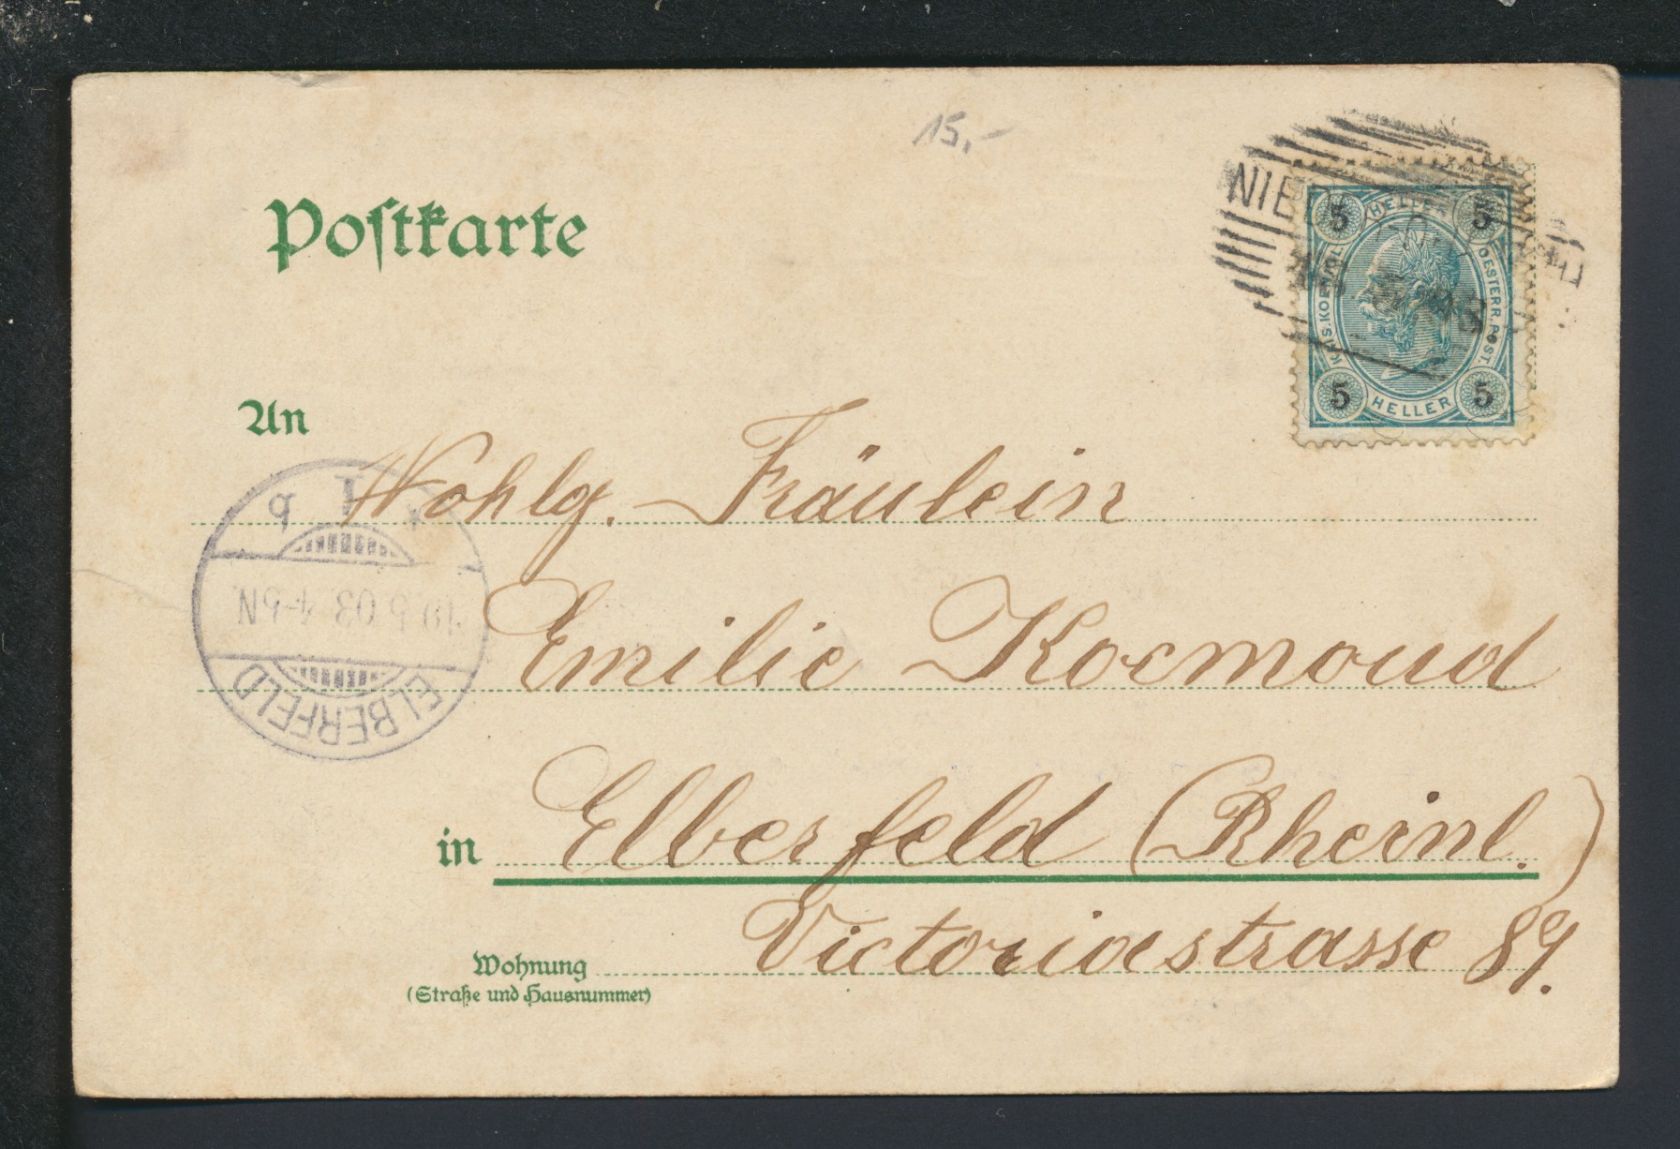 15,-
Postkarte
NIE
5 HELLER 5
KAIS. KOENIGL. OESTERR. POST.
5 HELLER 5
An
Wohlg. Fräulein
* I b
19.5.03. 4-5N.
ELBERFELD
Emilie Koemoud
in Elberfeld (Rheinl.)
Victoriastrasse 89.
Wohnung
(Straße und Hausnummer)